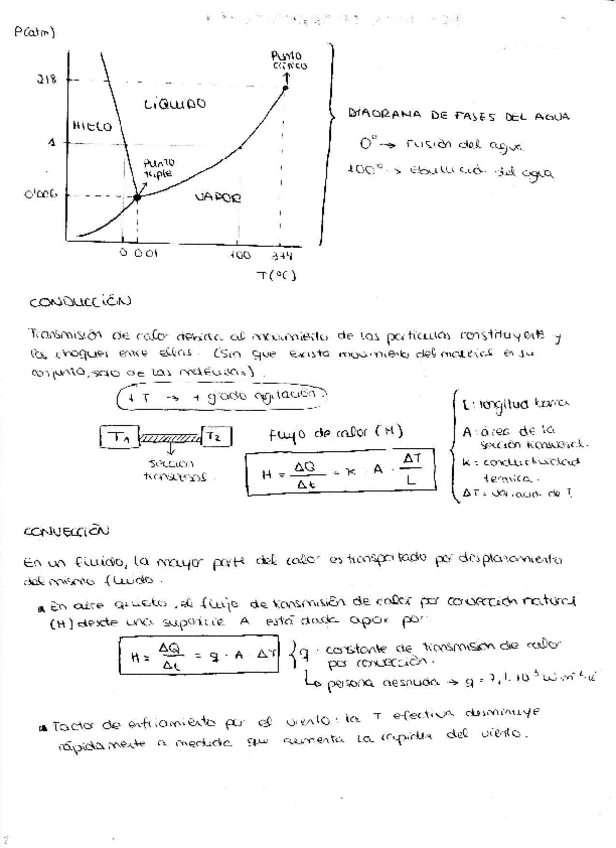 P(atm)
218
1
0'006
HIELO
LÍQUIDO
VAPOR
Punto
crítico
Punto
triple
0 0'01 100 374
T(ºC)
DIAGRAMA DE FASES DEL AGUA
0º → Fusión del agua
100º → ebullición del agua
CONDUCCIÓN
Transmisión de calor debida al movimiento de las partículas constituyente y
los choques entre ellas. (Sin que exista movimiento del material en su
conjunto, solo de las moléculas).
+ T → + grado agitación
T1 T2
sección
transversal
Flujo de calor (H)
H = ΔQ/Δt = k · A · ΔT/L
L: longitud barra
A: área de la
sección transversal.
k: conductividad
térmica.
ΔT: variación de T.
CONVECCIÓN
En un fluido, la mayor parte del calor es transportado por desplazamiento
del mismo fluido.
En aire quieto, el flujo de transmisión de calor por convección natural
(H) desde una superficie A está dada por:
H = ΔQ/Δt = q · A ΔT
q: constante de transmisión de calor
por convección.
↳ persona desnuda → q = 7,1·10
Factor de enfriamiento por el viento: la T efectiva disminuye
rápidamente a medida que aumenta la rapidez del viento.